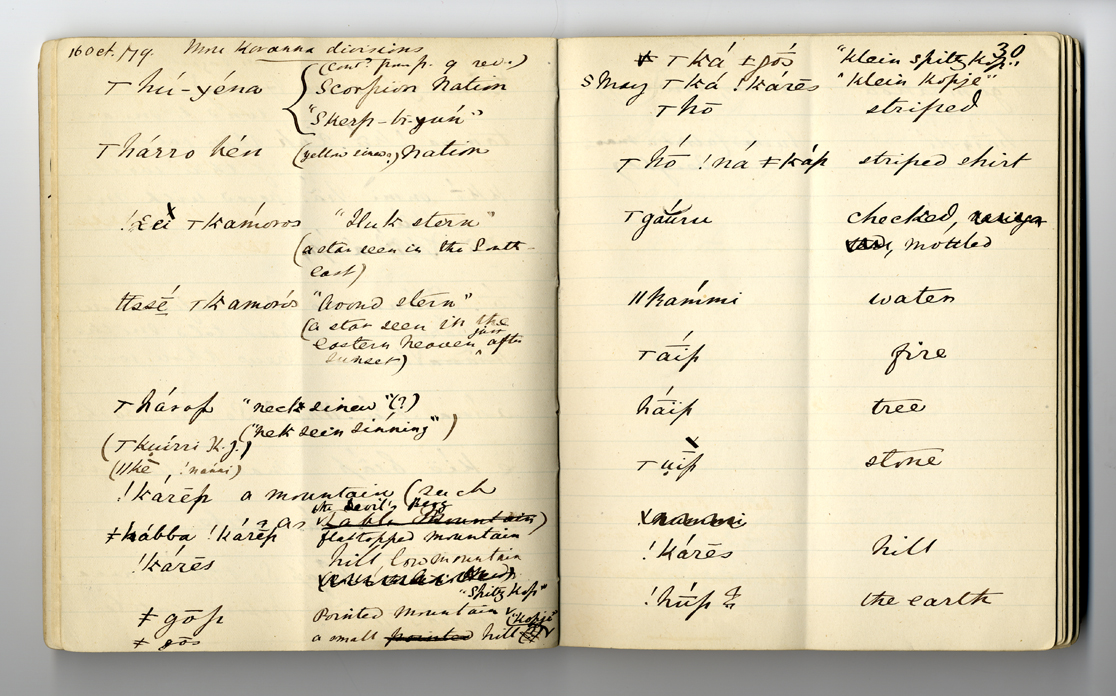 16 Oct. /79. More Koranna divisions
(cont. from p. 9 rev.)
⊤ hú-yéna Scorpion Nation
"Skerp-
⊤ hárro hén (yellow Nation
⊤kámoros stern"
(a star seen in the South-
east)
ǁssé ⊤kamorós "Avond stern"
(a star seen in the
eastern heaven just after
sunset)
⊤ hárop "neck sinew" (?)
("nek seen sinning")
(⊤kuírri K.J.)
(ǁkē !nanni)
!kárēp a mountain (such
the Devil's Berg
as Table Mountain)
ǂkábba !kárēp flat topped mountain
!kárēs hill, low mountain
"Spitz Kop"
ǂ gōp Pointed Mountain
"Kopje"
ǂ gōs a small pointed hill
30
⊤ ká ǂgōs "klein spitz kop"
S May ⊤ká !kárēs "klein kopje"
⊤ hō striped
⊤ hō !ná ǂkáp striped shirt
⊤ gaúru checked,
mottled
ǁkámmi water
⊤ áip fire
háip tree
⊤ uíp stone
!kárēs hill
!húp the earth